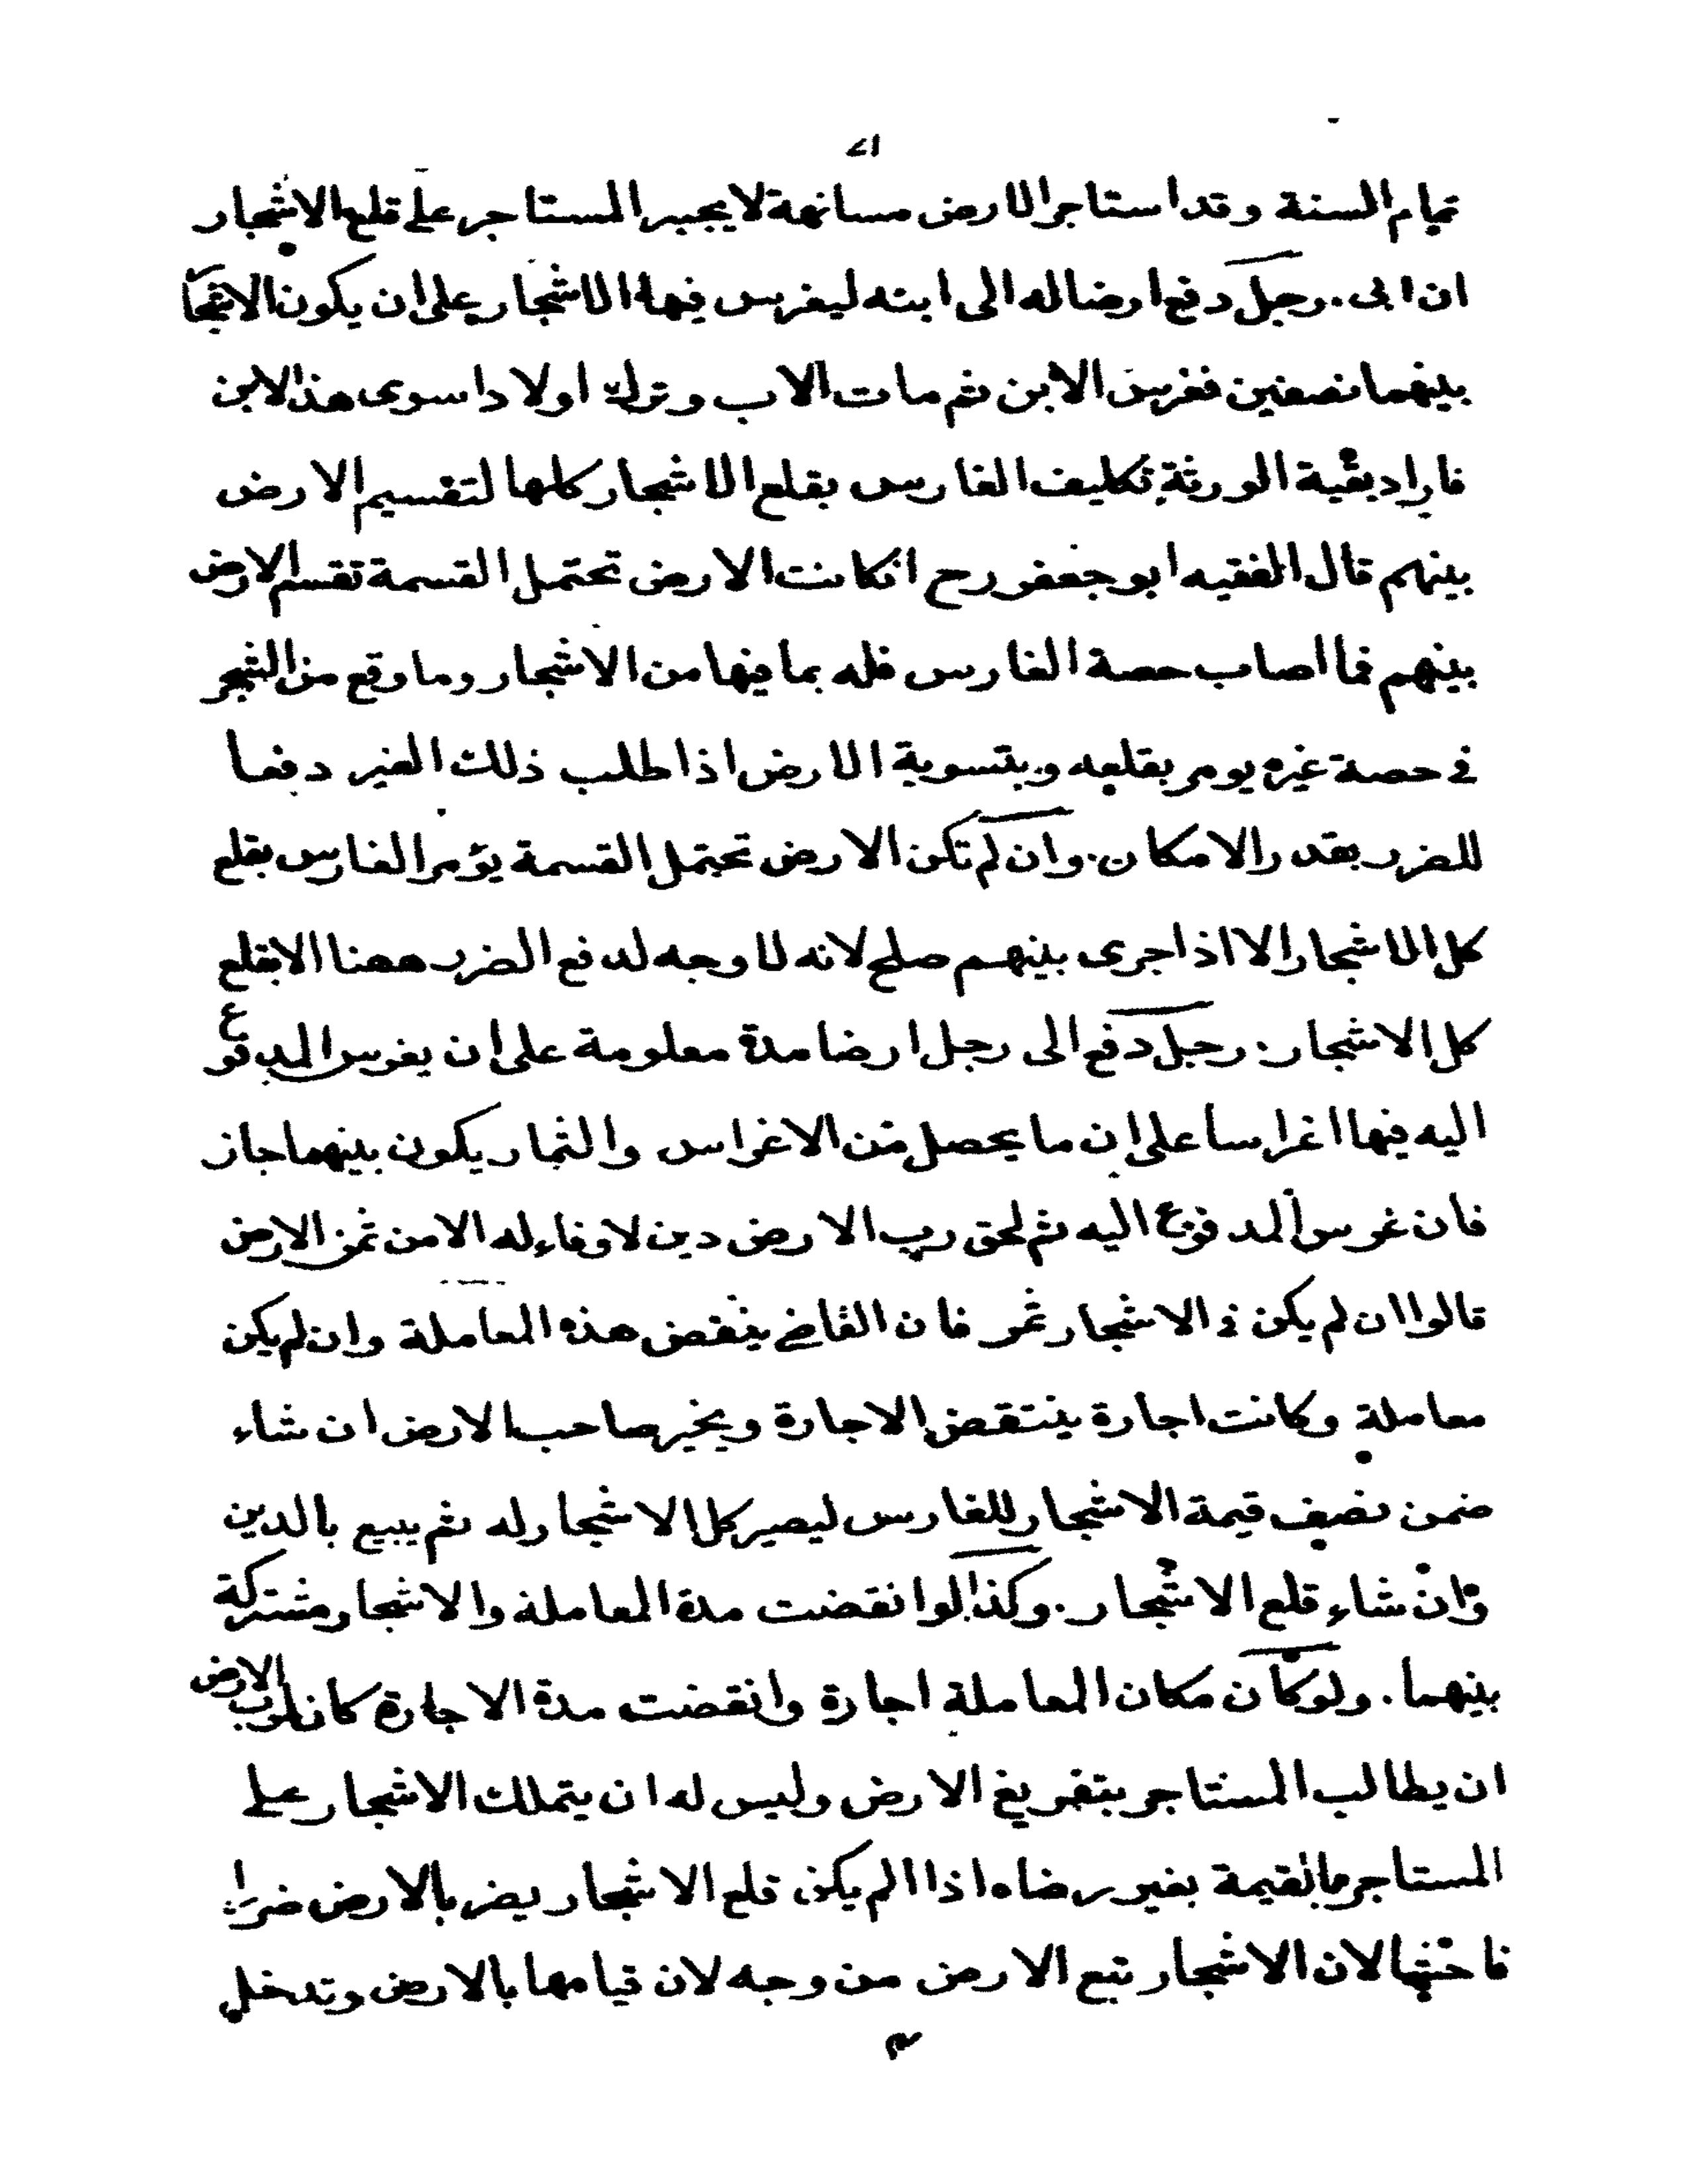 تمام السنة وقد استاجر الارض مسانهة لا يجبر المستاجر على قلع الاشجار
ان ابى . رجل دفع ارضا له الى ابنه ليغرس فيها الاشجار على ان يكون الاشجا
بينهما نصفين فغرس الابن ثم مات الاب وترك اولادا سوى هذ الابن
فاراد بقية الورثة تكليف الغارس بقلع الاشجار كلها لتقسيم الارض
بينهم قال الفقيه ابو جعفر رح انكانت الارض تحتمل القسمة تقسم الارض
بينهم فما اصاب حصة الغارس فله بما فيها من الاشجار وما وقع من الشجر
في حصة غيره يومر بقلعه وبتسوية الارض اذا طلب ذلك الغير دفعا
للضرر بقدر الامكان . وان لم تكن الارض تحتمل القسمة يؤمر الغارس بقلع
كل الاشجار الا اذا جرى بينهم صلح لانه لا وجه لدفع الضرر ههنا الا بقلع
كل الاشجار . رجل دفع الى رجل ارضا مدة معلومة على ان يغرس المدفوع
اليه فيها اغراسا على ان ما يحصل من الاغراس والثمار يكون بينهما جاز
فان غرس المدفوع اليه ثم لحق رب الارض دين لا وفاء له الا من ثمن الارض
قالوا ان لم يكن في الاشجار ثمر فان القاضي ينقض هذه المعاملة وان لم يكن
معاملة وكانت اجارة ينتقض الاجارة ويخير صاحب الارض ان شاء
ضمن نصف قيمة الاشجار للغارس ليصير كل الاشجار له ثم يبيع بالدين
وان شاء قلع الاشجار . وكذا لو انقضت مدة المعاملة والاشجار مشتركة
بينهما . ولو كان مكان المعاملة اجارة وانقضت مدة الاجارة كان لرب الارض
ان يطالب المستاجر بتفريغ الارض وليس له ان يتملك الاشجار على
المستاجر بالقيمة بغير رضاه اذا لم يكن قلع الاشجار يضر بالارض ضررا
فاحشا لان الاشجار تبع الارض من وجه لان قيامها بالارض وتدخل